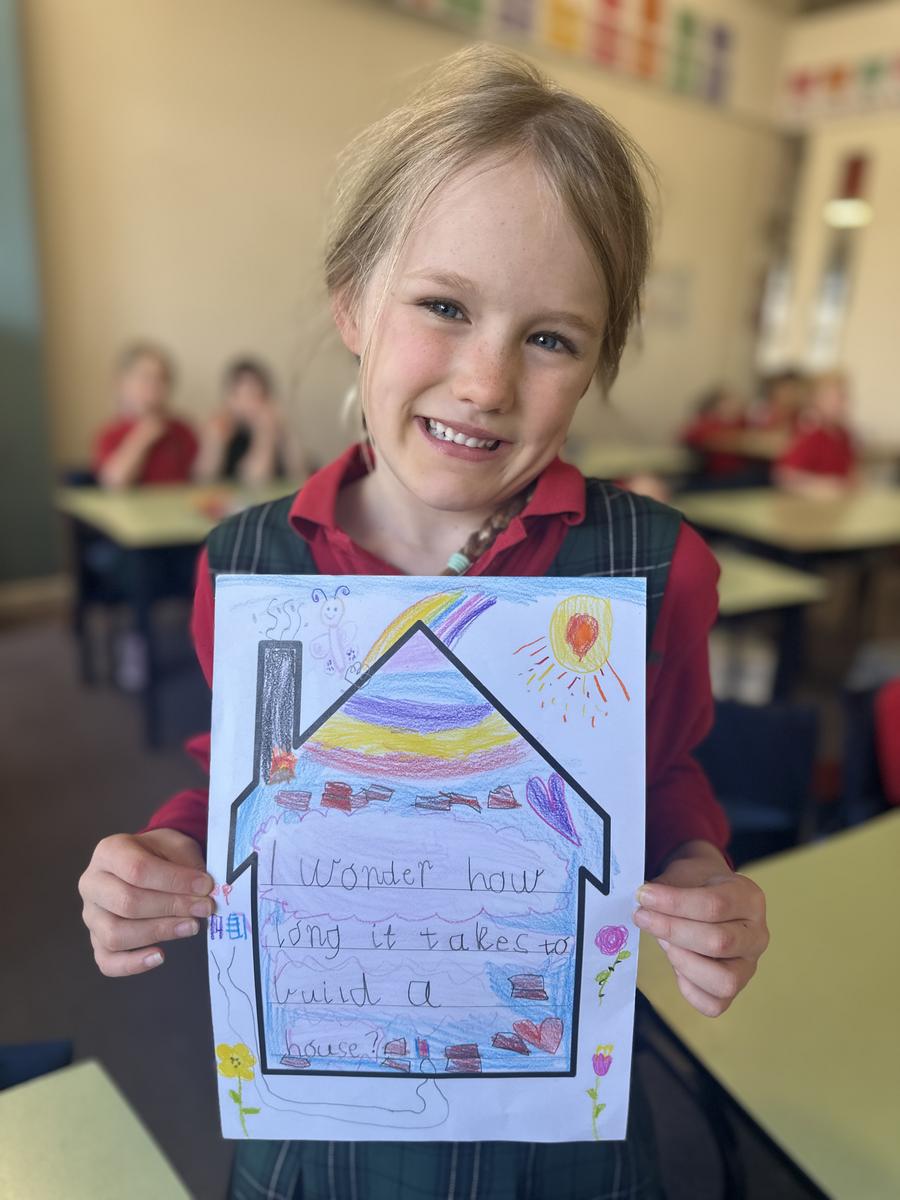 I wonder how
long it takes to
build a
house?